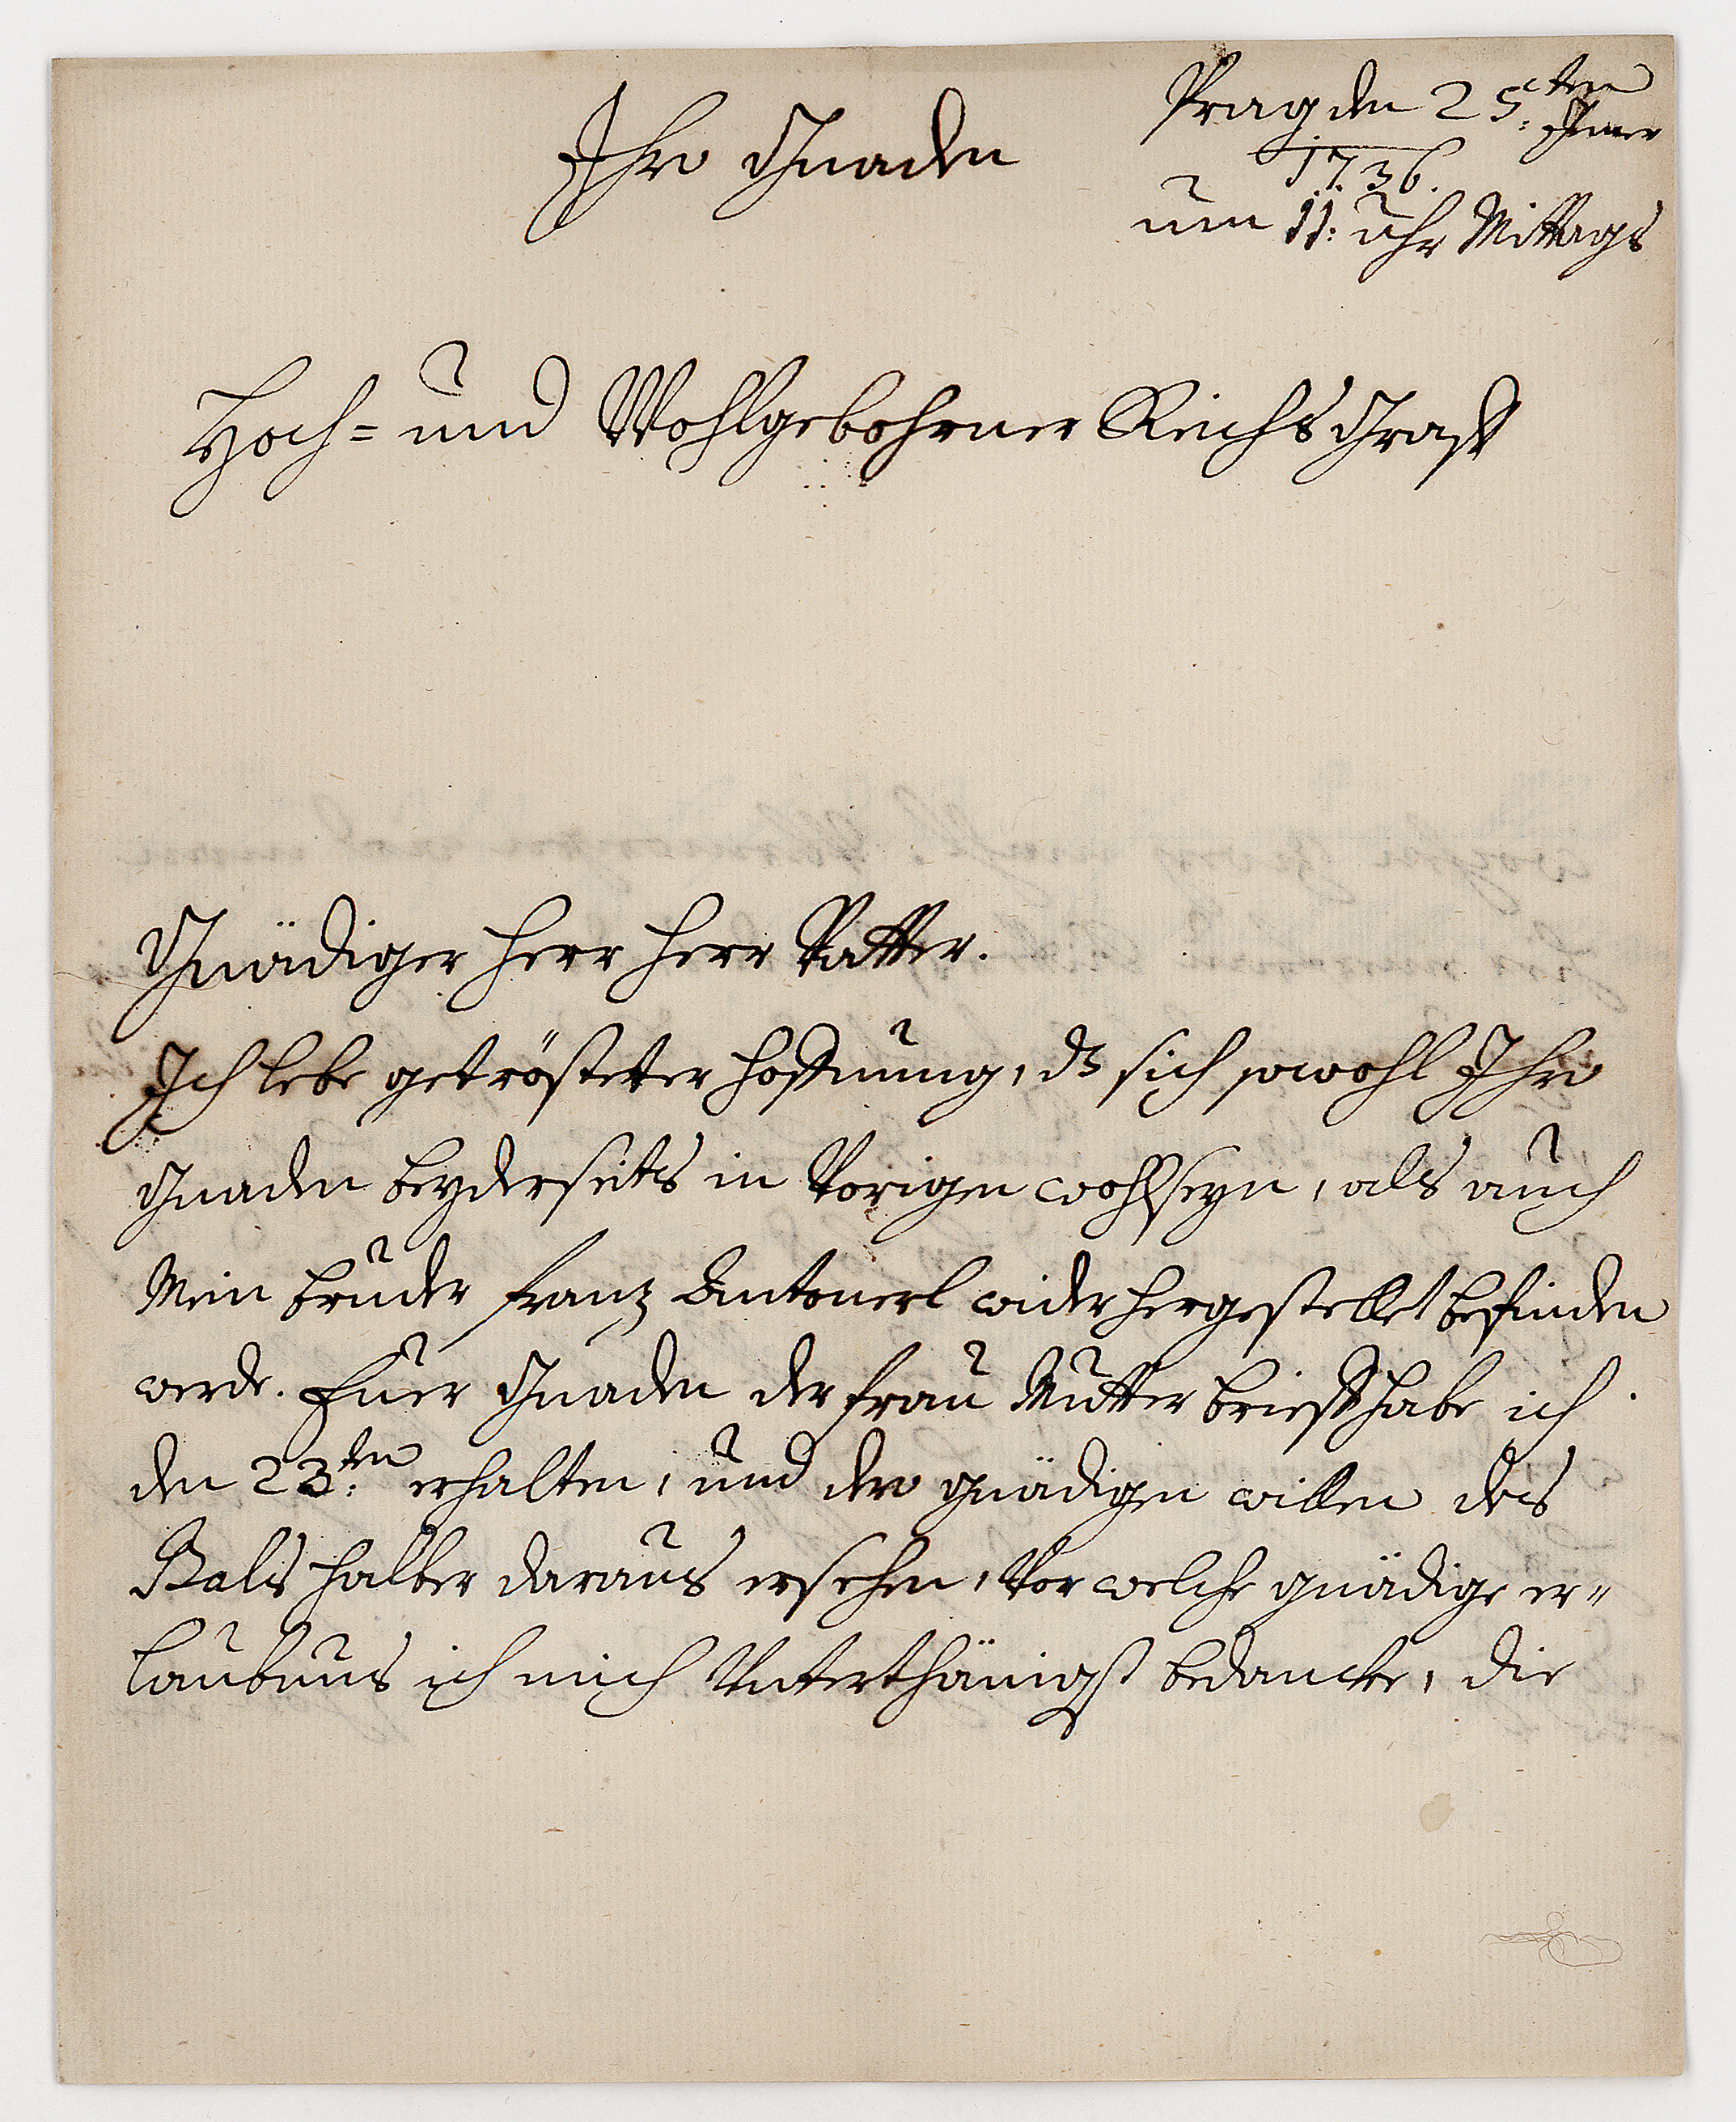 Prag den 25ten Jener
1736.
um 11: uhr Mittags
Ihro Gnaden
Hoch= und Wohlgebohrner Reichs Graff
Gnädiger Herr Herr Vatter.
Ich lebe getrösteter Hoffnung, dß sich sowohl Ihro
Gnaden beyderseits in Vorigen wohlseyn, als auch
Mein bruder Frantz Antonerl widerhergestellet befinden
werde. Euer Gnaden der Frau Mutter brieff habe ich
den 23:ten erhalten, und dero gnädigen willen des
Bals halber daraus ersehen, Vor welche gnädige er=
laubnus ich mich Unterthänigst bedancke, die